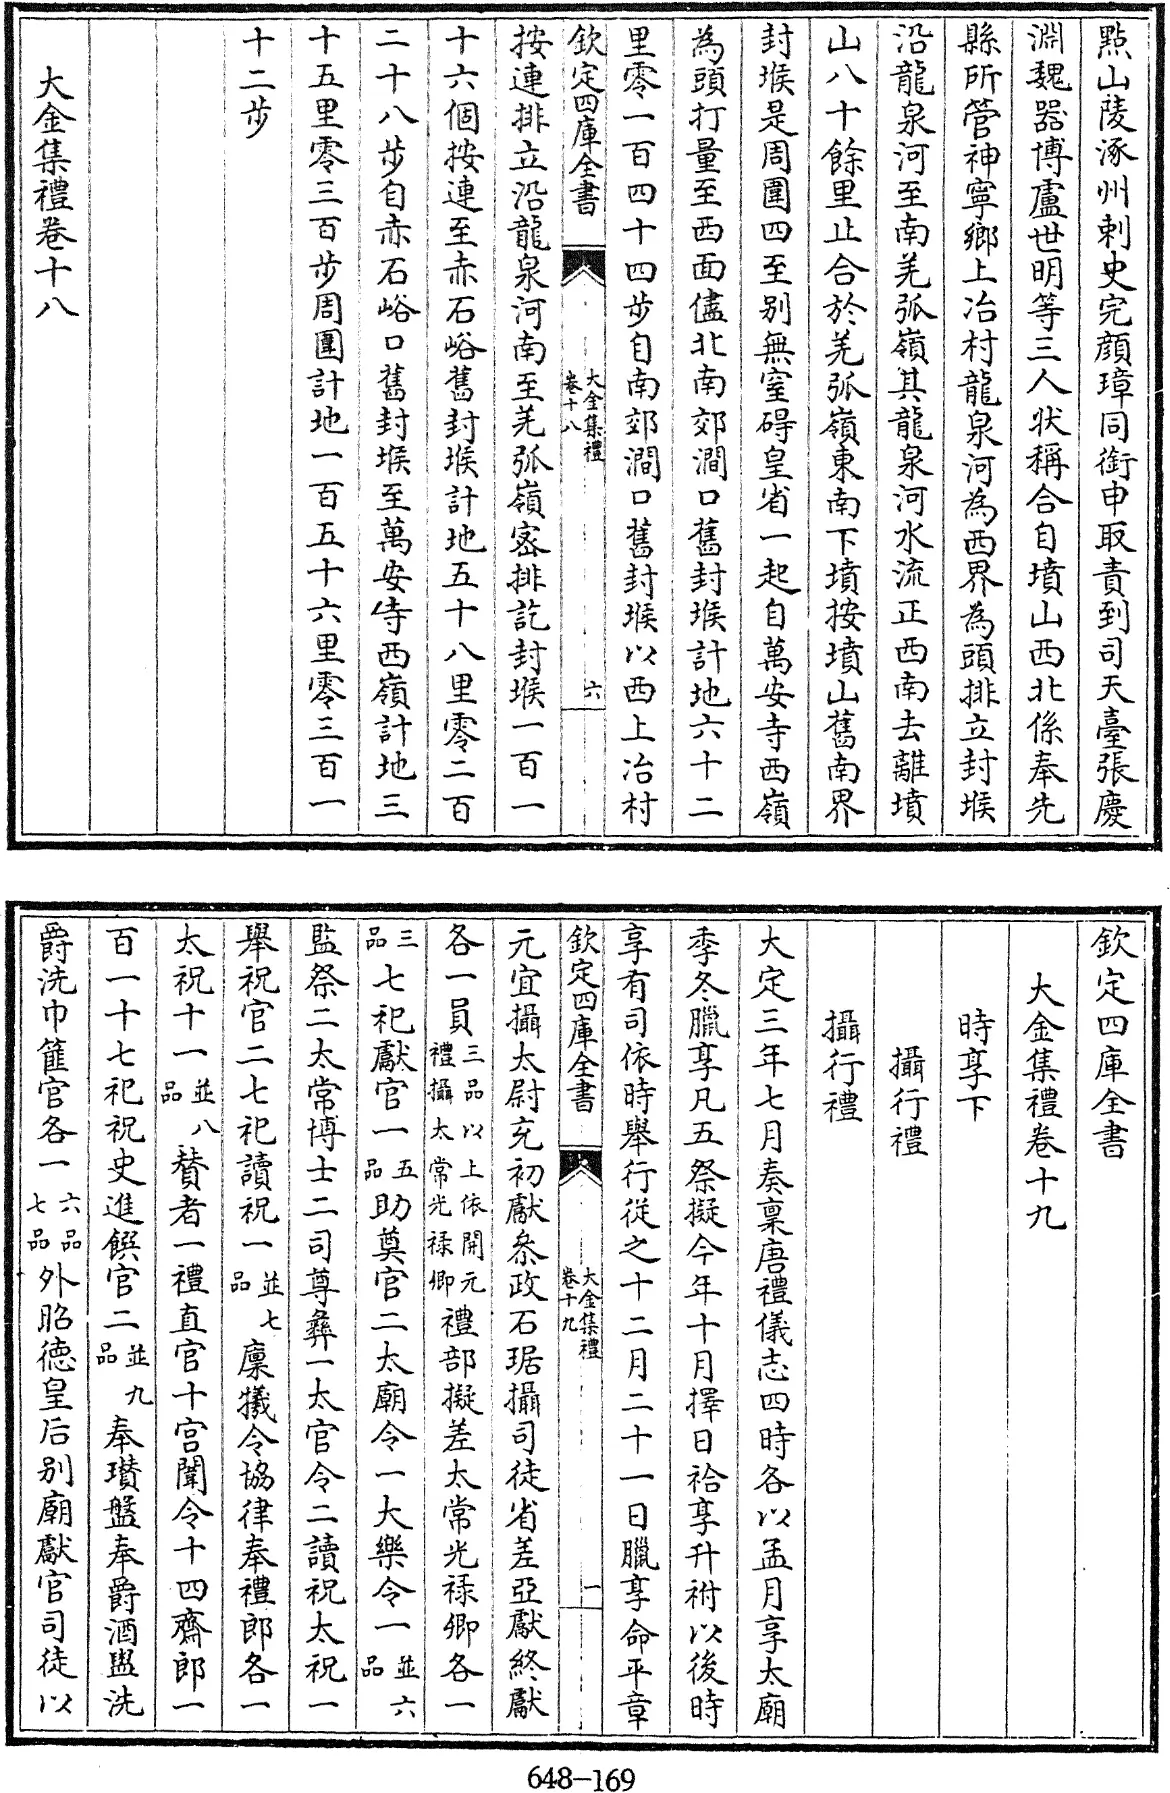 點山陵涿州刺史完顔璋同銜申取責到司天臺張慶
淵魏器博盧世明等三人狀稱合自墳山西北係奉先
縣所管神寧鄉上冶村龍泉河為西界為頭排立封堠
沿龍泉河至南羌弧嶺其龍泉河水流正西南去離墳
山八十餘里止合於羌弧嶺東南下墳按墳山舊南界
封堠是周圍四至别無窒碍皇省一起自萬安寺西嶺
為頭打量至西面儘北南郊澗口舊封堠計地六十二
里零一百四十四步自南郊澗口舊封堠以西上冶村
欽定四庫全書
大金集禮
卷十八
六
按連排立沿龍泉河南至羌弧嶺密排訖封堠一百一
十六個按連至赤石峪舊封堠計地五十八里零二百
二十八步自赤石峪口舊封堠至萬安寺西嶺計地三
十五里零三百步周圍計地一百五十六里零三百一
十二步
大金集禮卷十八
欽定四庫全書
大金集禮卷十九
時享下
攝行禮
攝行禮
大定三年七月奏稟唐禮儀志四時各以孟月享太廟
季冬臘享凡五祭擬今年十月擇日祫享升祔以後時
享有司依時舉行從之十二月二十一日臘享命平章
欽定四庫全書
大金集禮
卷十九
一
元宜攝太尉充初獻叅政石琚攝司徒省差亞獻終獻
各一員三品以上依開元禮攝太常光禄卿禮部擬差太常光禄卿各一
三品七祀獻官一五品助奠官二太廟令一大樂令一並六品
監祭二太常博士二司尊彝一太官令二讀祝太祝一
舉祝官二七祀讀祝一並七品廩犧令協律奉禮郎各一
太祝十一並八品贊者一禮直官十宫闈令十四齋郎一
百一十七祀祝史進饌官二並九品奉瓚盤奉爵酒盥洗
爵洗巾篚官各一六品七品外昭德皇后别廟獻官司徒以
648-169